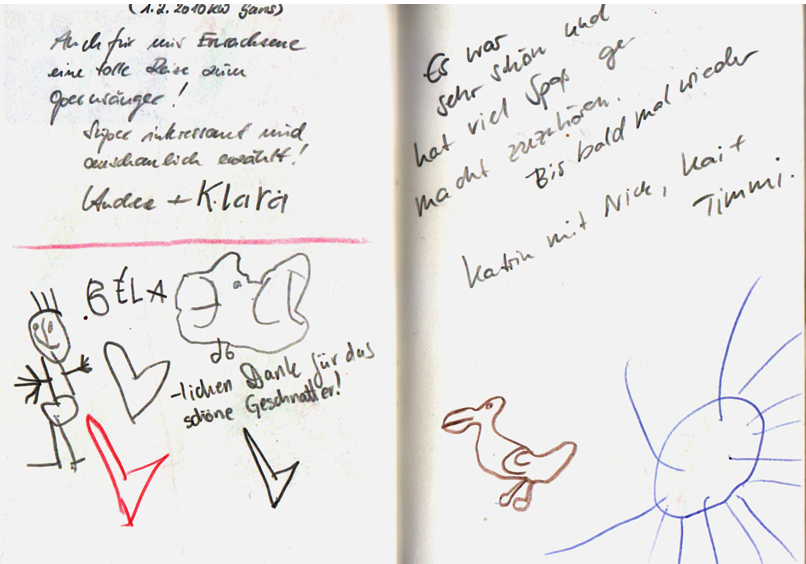 (1.2.2010 KW Gans)
Auch für uns Erwachsene
eine tolle Reise zum
Opernsänger!
Super interessant und
anschaulich erzählt!
Andrea + Klara
BÉLA
-lichen Dank für das
schöne Geschnatter!
Es war
sehr schön und
hat viel Spaß ge
macht zuzuhören.
Bis bald mal wieder
Katrin mit Nick, Kai +
Timmi.